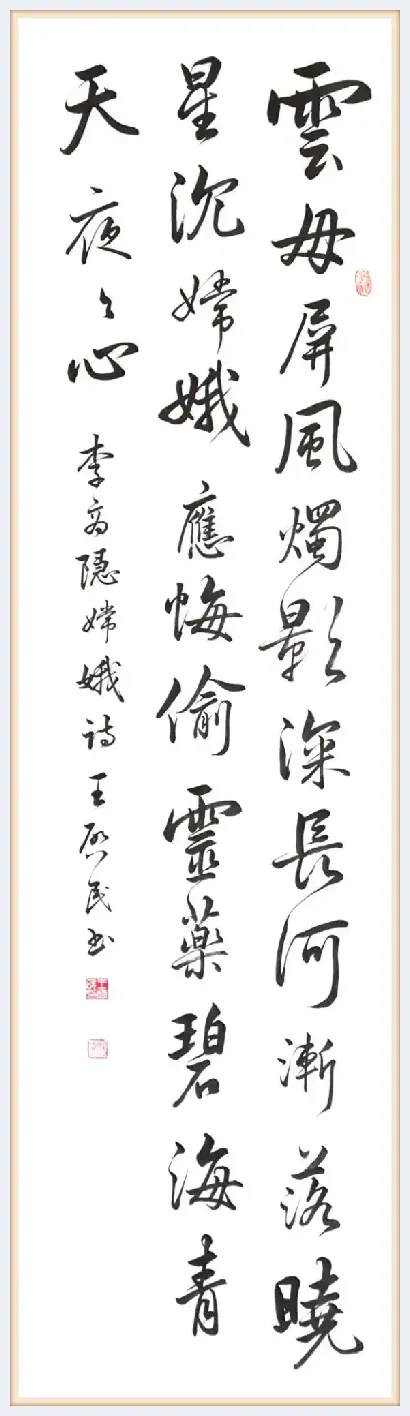 雲母屏風燭影深長河漸落曉
星沉嫦娥應悔偷靈藥碧海青
天夜々心
李商隐嫦娥诗王启民书